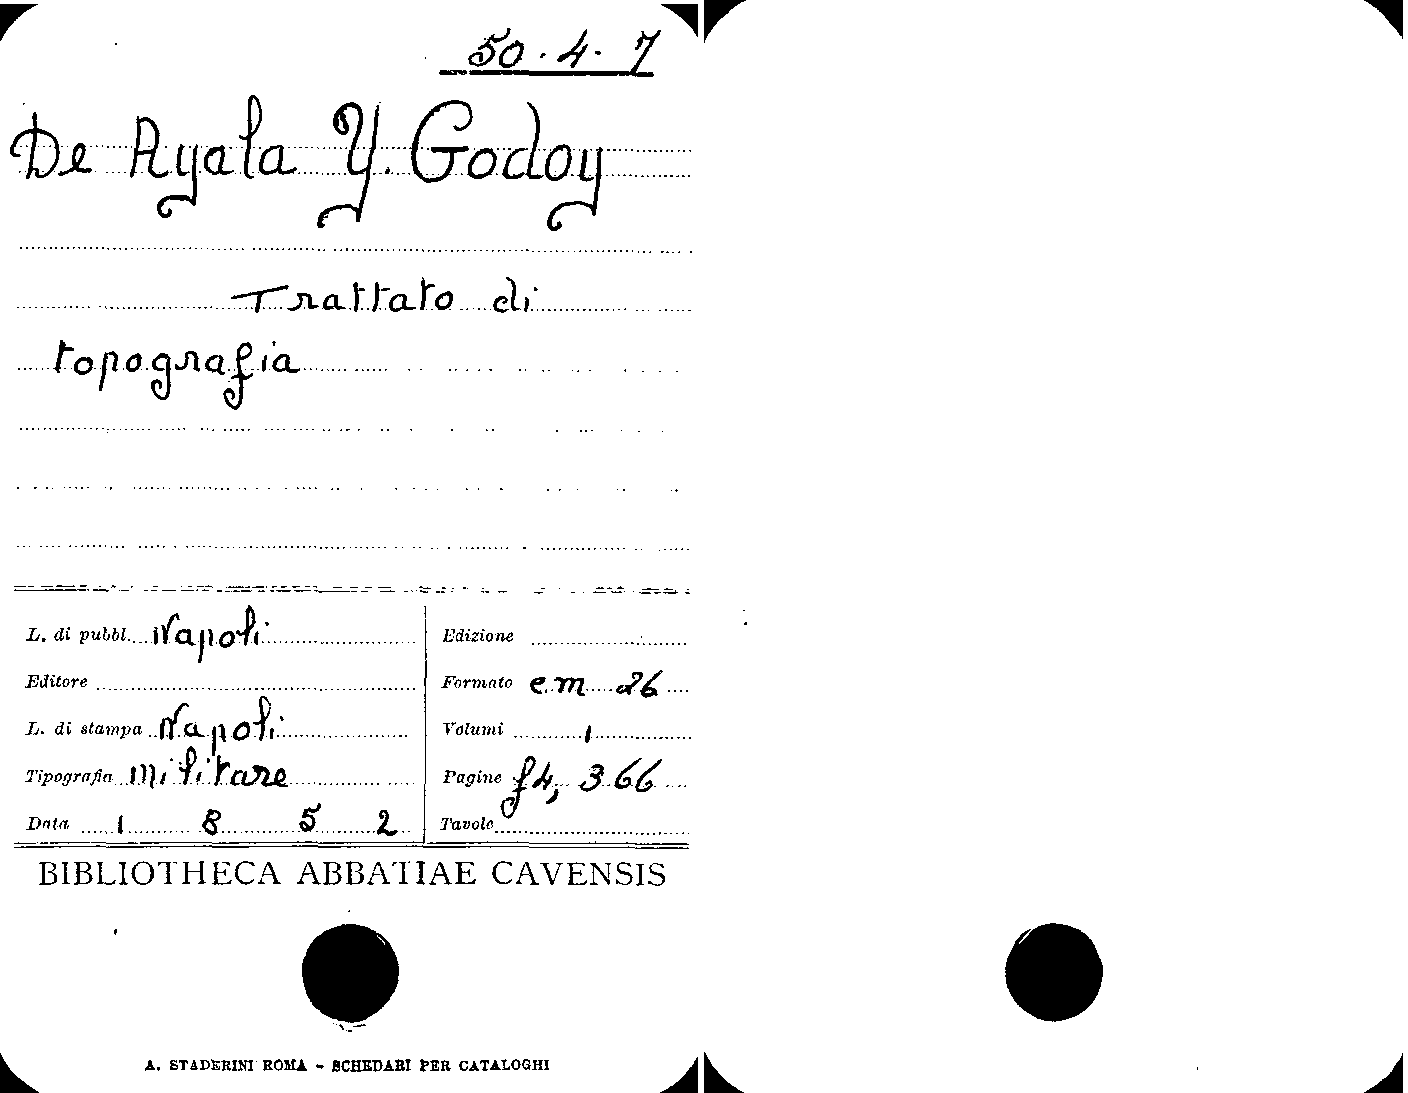 50.4.7
De Ayala Y. Godoy
Trattato di
topografia
L. di pubbl. Napoli
Editore
L. di stampa Napoli
Tipografia militare
Data 1 8 5 2
Edizione
Formato cm 26
Volumi 1
Pagine f4, 366
Tavole
BIBLIOTHECA ABBATIAE CAVENSIS
A. STADERINI ROMA - SCHEDARI PER CATALOGHI